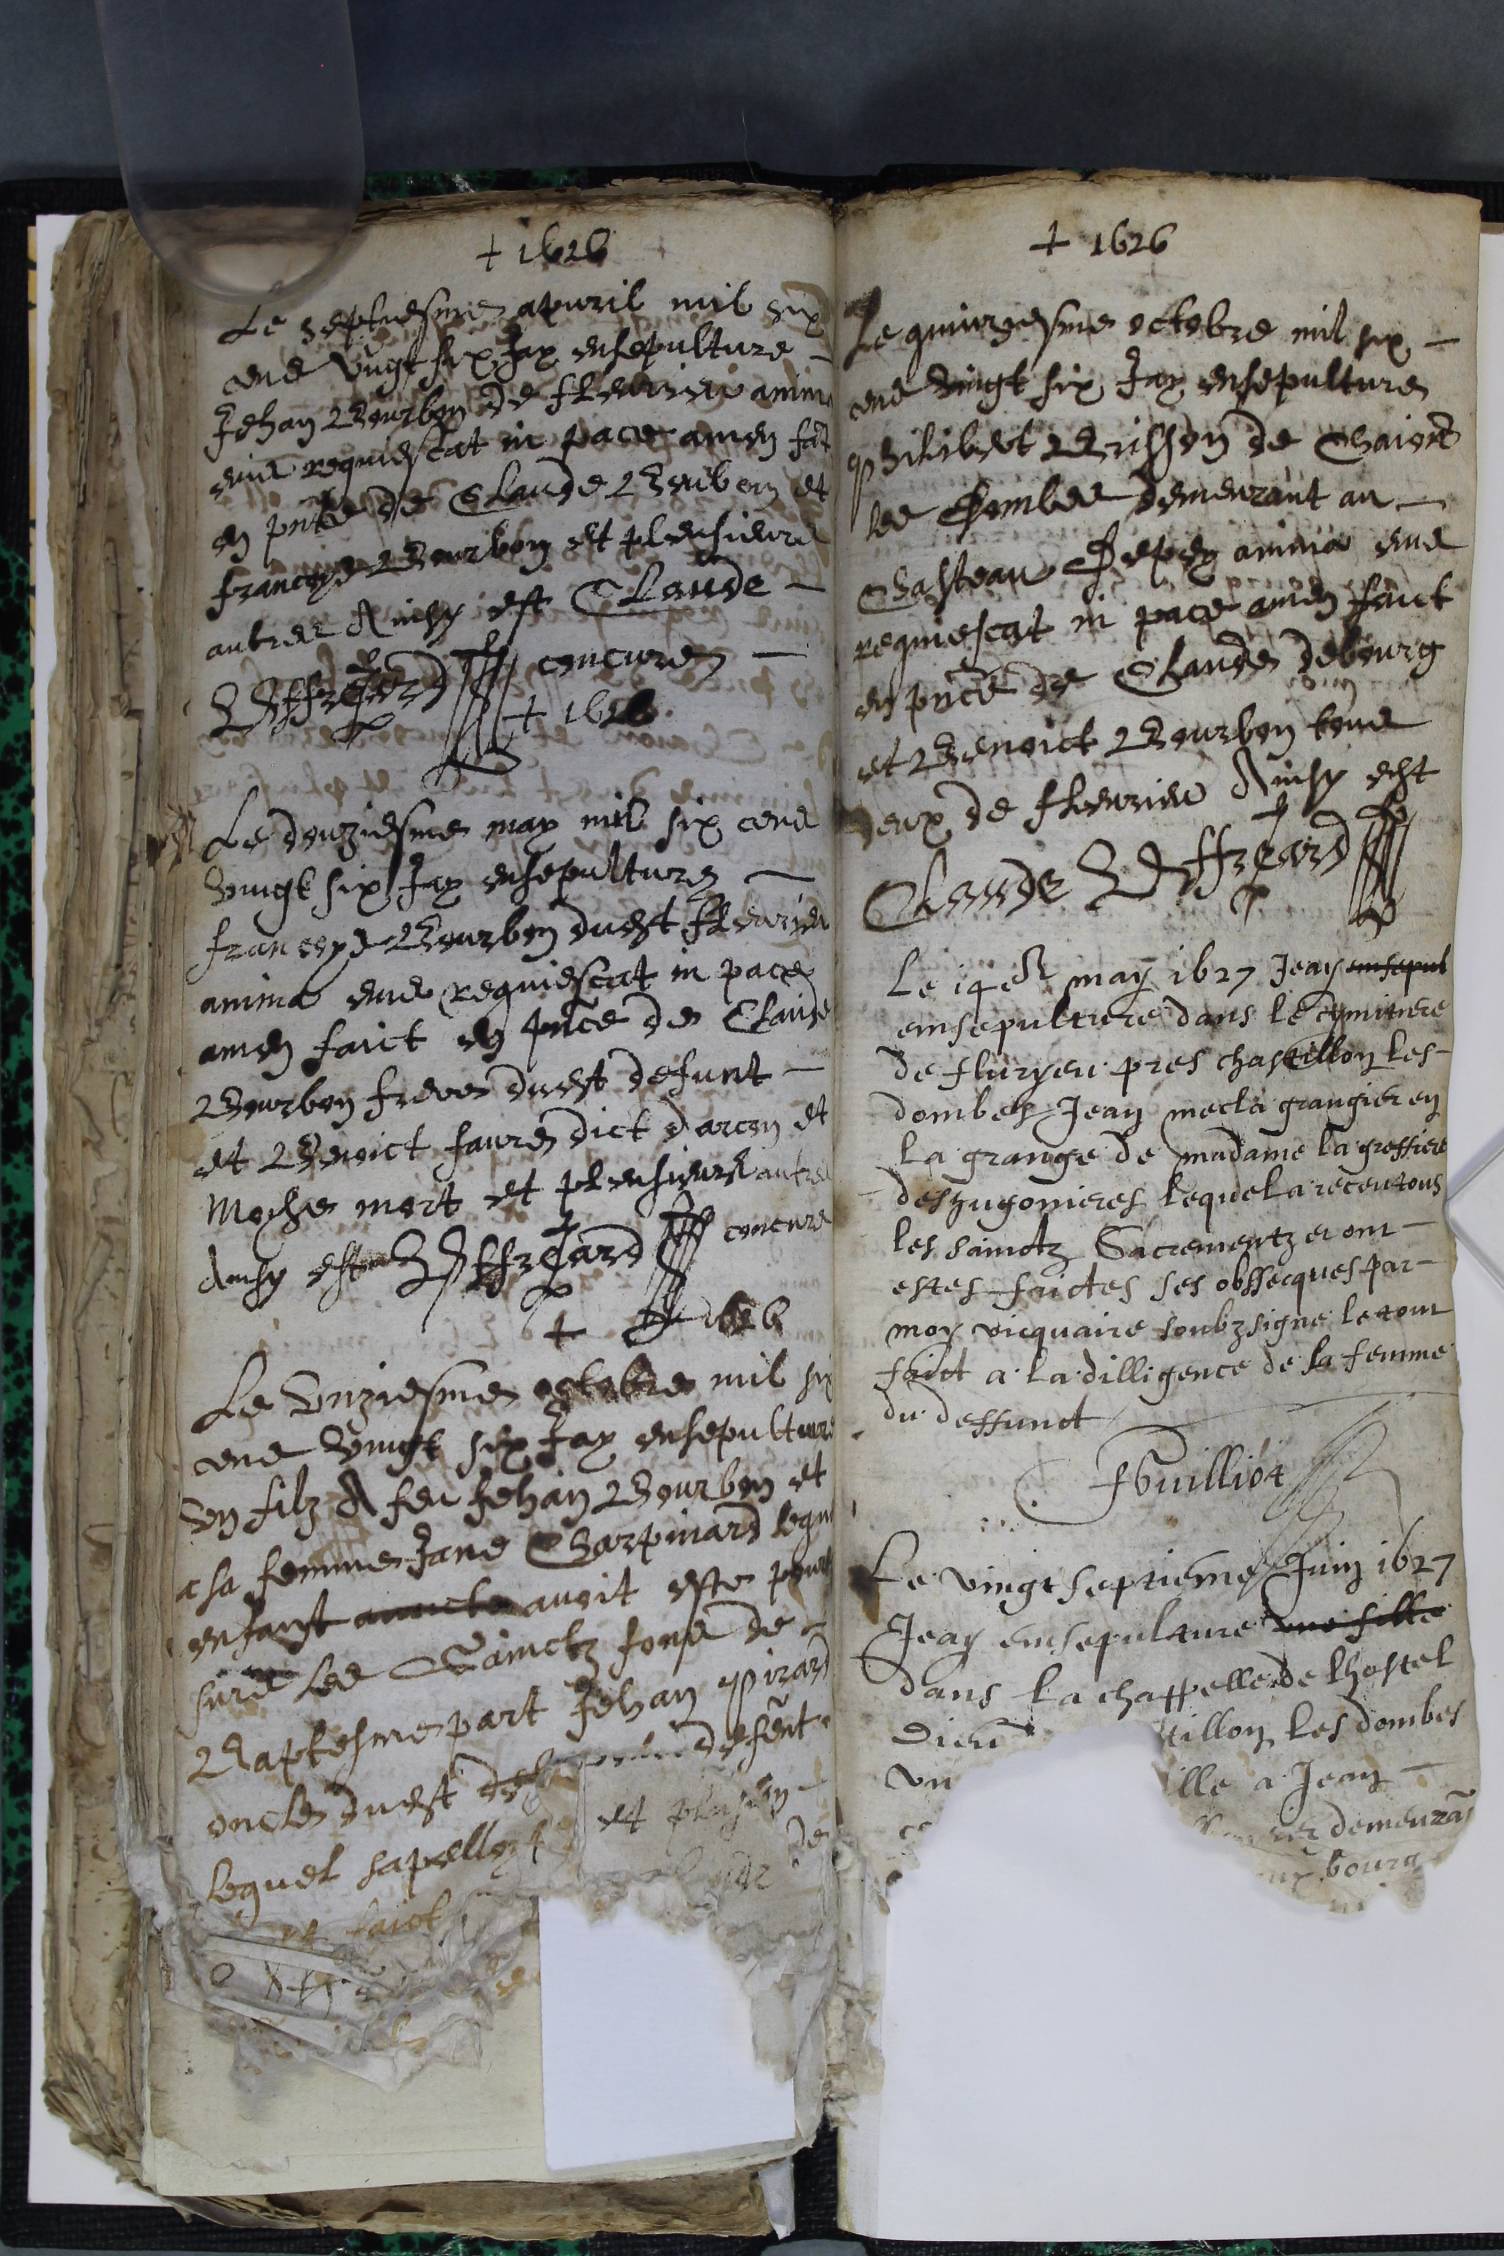 + 1626
Le septiesme apvril mil six
cens vingt six Jay ensepulture
Jehan Bourbon de fleurieu anima
eius requiescat in pace amen faict
en pnce de Claude Bourbon et
francoys Bourbon et pleusieurs
autres Ainsy est Claude
concure
+ 1626
Le douziesme may mil six cens
vingt six Jay ensepulture
francoys Bourbon dudt fleurieu
anima eius requiescat in pace
amen faict en pnce de Claude
Bourbon frere dudt defunt
et Benoict faure dict darcon et
Moyse mort et pleusieurs autres
Ainsy est concure
+ 1626
Le unziesme octobre mil six
cens vingt six Jay ensepulture
un filz A feu Jehan Bourbon et
a sa femme Jane Charpinard lequel
enfant avoit este
sur les Sainctz fons de
Baptesme part Jehan Pirard
oncle dudt defunt
lequel sapelloyt et
faict
+ 1626
Le quinziesme octobre mil six
cens vingt six Jay ensepulture
Philibert Brisson de
les Dombes demeurant au
Chasteau anima eius
requiescat in pace amen faict
en pnce de Claude debourg
et Benoict Bourbon tous
deux de fleurieu Ainsy est
Claude
Le 14e may 1627 Jeay ensepul
ensepulture dans le cymitiere
de fluryeu pres chastillon les
dombes Jean mecla grangier en
la grange de madame la greffiere
deshugonieres lequel a receu tous
les sainctz Sacrementz et ont
estes faictes ses obssecques par
moy vicquaire soubzsigne le tout
faict a la dilligence de la femme
du deffunct
Guilliot
Le vingt septieme Juin 1627
Jeay ensepulture une fille
dans la chappelle de lhostel
Dieu tillon les dombes
un ille a Jean
demeurã
bourg